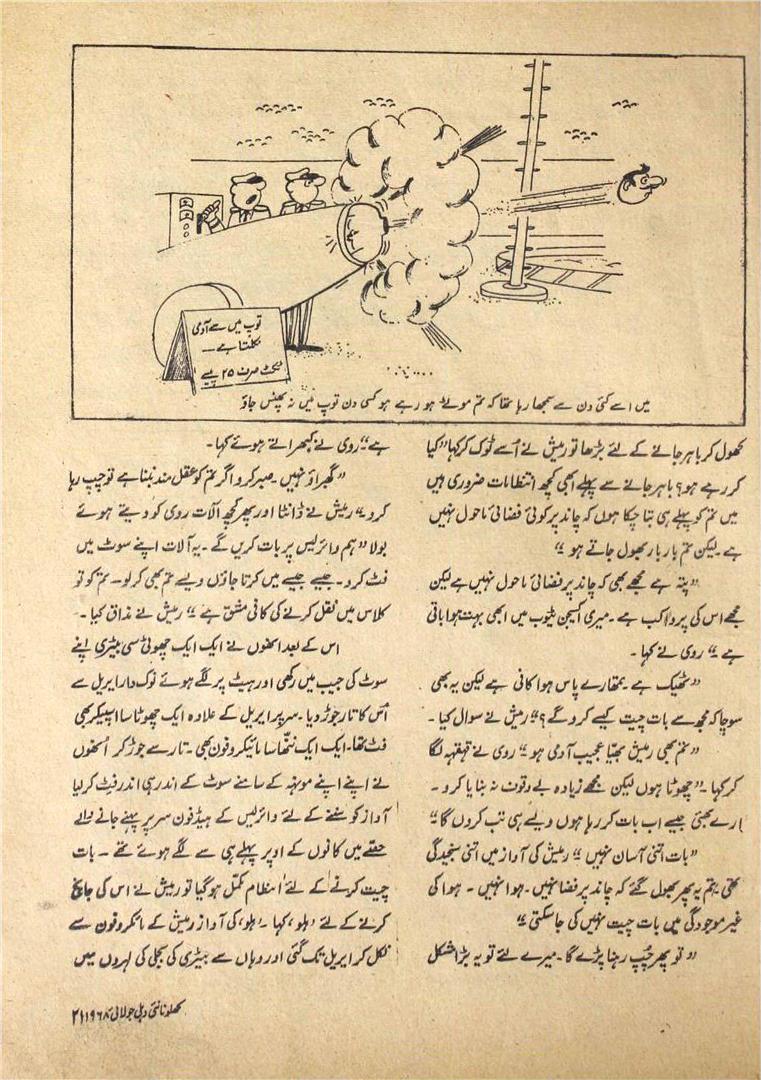 توپ میں سے آدمی
نکلتا ہے —
ٹکٹ صرف ۲۵ پیسے
میں اسے کئی دن سے سمجھا رہا تھا کہ تم موٹے ہو رہے ہو کسی دن توپ میں نہ پھنس جاؤ
کھول کر باہر جانے کے لئے بڑھا تو رمیش نے اُسے ٹوک کر کہا "کیا
کر رہے ہو؟ باہر جانے سے پہلے ابھی کچھ انتظامات ضروری ہیں
میں تم کو پہلے ہی بتا چکا ہوں کہ چاند پر کوئی فضائی ماحول نہیں
ہے۔ لیکن تم بار بار بھول جاتے ہو۔"
"پتہ ہے مجھے بھی کہ چاند پر فضائی ماحول نہیں ہے لیکن
مجھے اس کی پرواکب ہے۔ میری آکسیجن ٹیوب میں ابھی بہت ہوا باقی
ہے۔" روی نے کہا۔
"ٹھیک ہے۔ تمہارے پاس ہوا کافی ہے لیکن یہ بھی
سوچا کہ مجھ سے بات چیت کیسے کرو گے؟" رمیش نے سوال کیا۔
"تم بھی رمیش بھیا عجیب آدمی ہو۔" روی نے قہقہہ لگا
کر کہا۔ "چھوٹا ہوں لیکن مجھے زیادہ بے وقوف نہ بنایا کرو۔
ارے بھئی جیسے اب بات کر رہا ہوں ویسے ہی تب کروں گا۔"
"بات اتنی آسان نہیں۔" رمیش کی آواز میں اتنی سنجیدگی
تھی۔ تم یہ پھر بھول گئے کہ چاند پر فضا نہیں۔ ہوا نہیں۔ ہوا کی
غیر موجودگی میں بات چیت نہیں کی جاسکتی۔"
"تو پھر چُپ رہنا پڑے گا۔ میرے لئے تو یہ بڑا مشکل
ہے۔" روی نے گھبراتے ہوئے کہا۔
"گھبراؤ نہیں۔ صبر کرو اگر تم کو عقل مند بننا ہے تو چپ رہا
کرو۔" رمیش نے ڈانٹا اور پھر کچھ آلات روی کو دیتے ہوئے
بولا "ہم وائرلیس پر بات کریں گے۔ یہ آلات اپنے سوٹ میں
فٹ کرو۔ جیسے جیسے میں کرتا جاؤں ویسے تم بھی کرلو۔ تم کو تو
کلاس میں نقل کرنے کی کافی مشق ہے۔" رمیش نے مذاق کیا۔
اس کے بعد انھوں نے ایک ایک چھوٹی سی بیٹری اپنے
سوٹ کی جیب میں رکھی اور ہیٹ پر لگے ہوئے نوک دار ایریل سے
اُس کا تار جوڑ دیا۔ سر پر ایریل کے علاوہ ایک چھوٹا سا اسپیکر بھی
فٹ تھا۔ ایک ایک ننھا سا مائیکروفون بھی۔ تار سے جوڑ کر اُنھوں
نے اپنے اپنے مونہہ کے سامنے سوٹ کے اندر ہی اندر فِٹ کرلیا
آواز کو سننے کے لئے وائرلیس کے ہیڈ فون سر پر پہنے جانے والے
حصّے میں کانوں کے اوپر پہلے ہی سے لگے ہوئے تھے۔ بات
چیت کرنے کے لئے انتظام مکمل ہوگیا تو رمیش نے اس کی جانچ
کرنے کے لئے 'ہلو' کہا۔ 'ہلو' کی آواز رمیش کے مائکروفون سے
نکل کر ایریل تک گئی اور وہاں سے بیٹری کی بجلی کی لہروں میں
کھلونا نئی دہلی جولائی ۱۹۶۸ء ۲۱